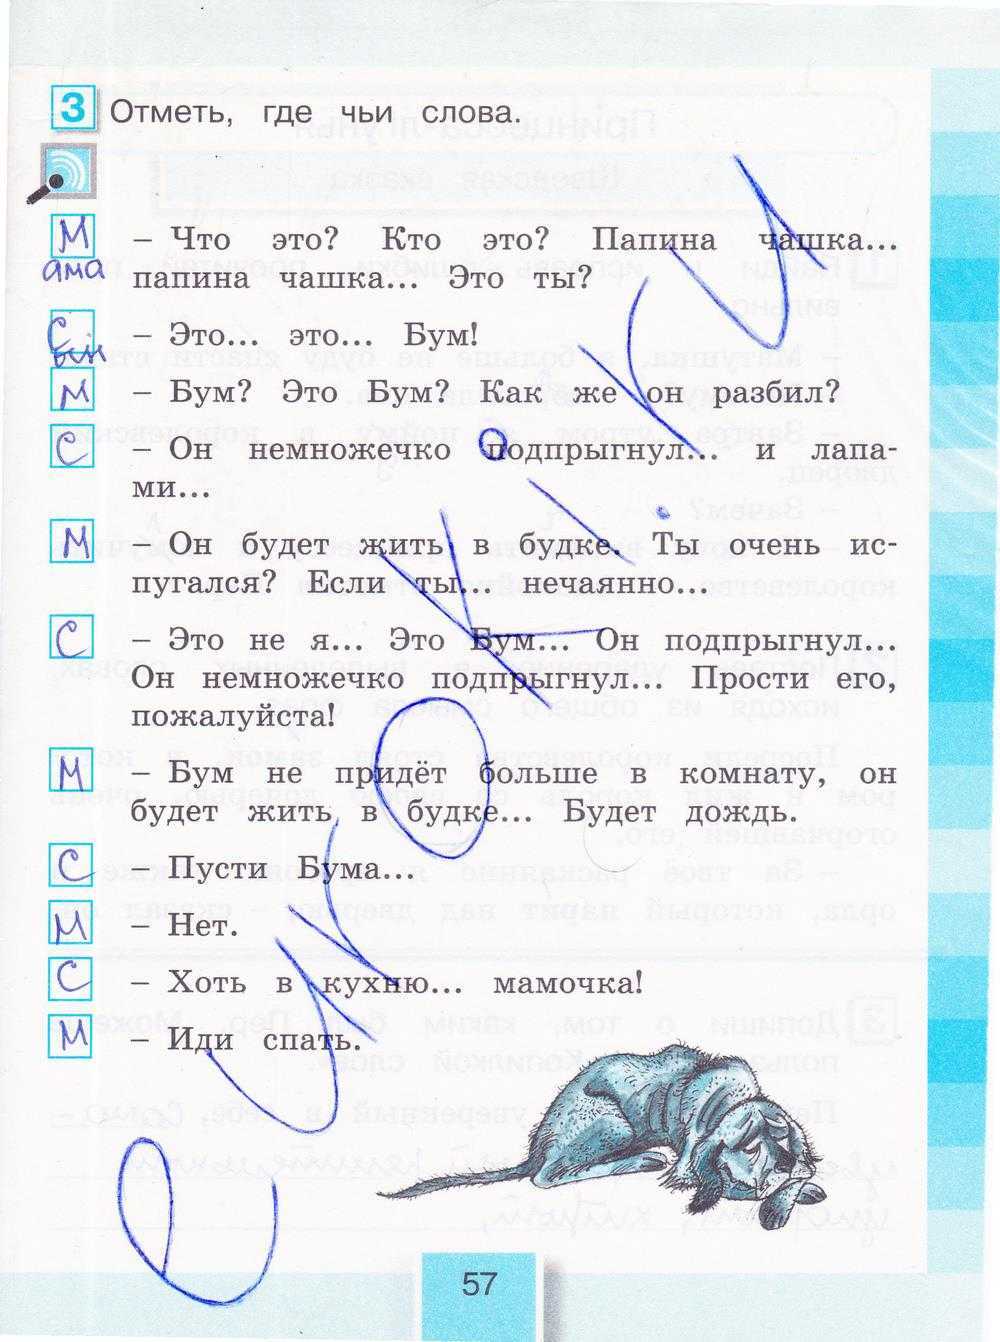 3 Отметь, где чьи слова.
Мама – Что это? Кто это? Папина чашка...
папина чашка... Это ты?
Сын – Это... это... Бум!
М – Бум? Это Бум? Как же он разбил?
С – Он немножечко подпрыгнул... и лапа-
ми...
М – Он будет жить в будке. Ты очень ис-
пугался? Если ты... нечаянно...
С – Это не я... Это Бум... Он подпрыгнул...
Он немножечко подпрыгнул... Прости его,
пожалуйста!
М – Бум не придёт больше в комнату, он
будет жить в будке... Будет дождь.
С – Пусти Бума...
М – Нет.
С – Хоть в кухню... мамочка!
М – Иди спать.
57